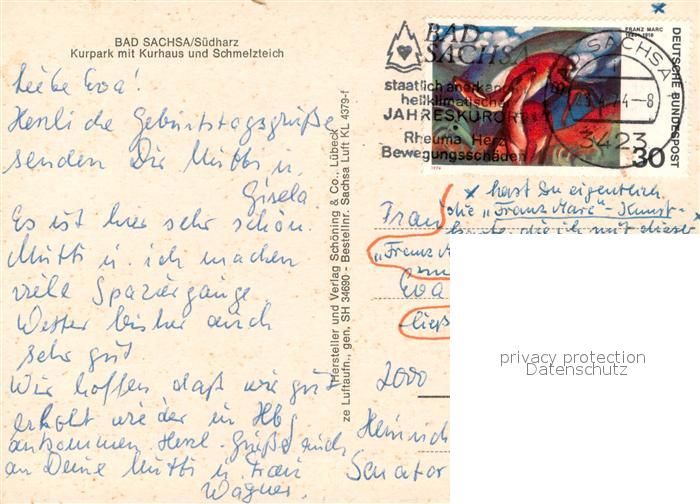 BAD SACHSA/Südharz
Kurpark mit Kurhaus und Schmelzteich
Liebe Eva!
Herzliche Geburtstagsgrüße
senden Dir Mutti u.
Gisela
Es ist hier sehr schön.
Mutti u. ich machen
viele Spaziergänge.
Wetter bisher auch
sehr gut
Wir hoffen daß wir gut
erholt wieder in Hbg
ankommen. Herzl. Grüße auch
an Deine Mutti u. Frau
Wagner.
Hersteller und Verlag Schöning & Co., Lübeck
ze Luftaufn., gen. SH 34690 - Bestellnr. Sachsa Luft KL 4379-f
BAD
SACHSA
staatlich anerkann
heilklimatischer
JAHRESKURORT
Rheuma Herz
Bewegungsschäden
BAD SACHSA 1
74-8
3423
FRANZ MARC
1880-1916
DEUTSCHE BUNDESPOST
30
1974
x hast Du eigentlich
die „Franz Marc"-Kunst-
die ich mit dieser
Frau
„Franz M
Eva
ließ
2000
Heinrich
Senator
privacy protection
Datenschutz